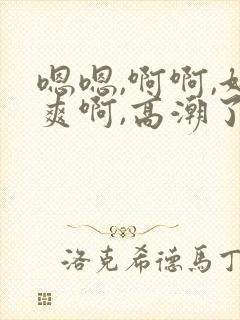 嗯嗯,啊啊,好
爽啊,高潮了
洛克希德馬丁